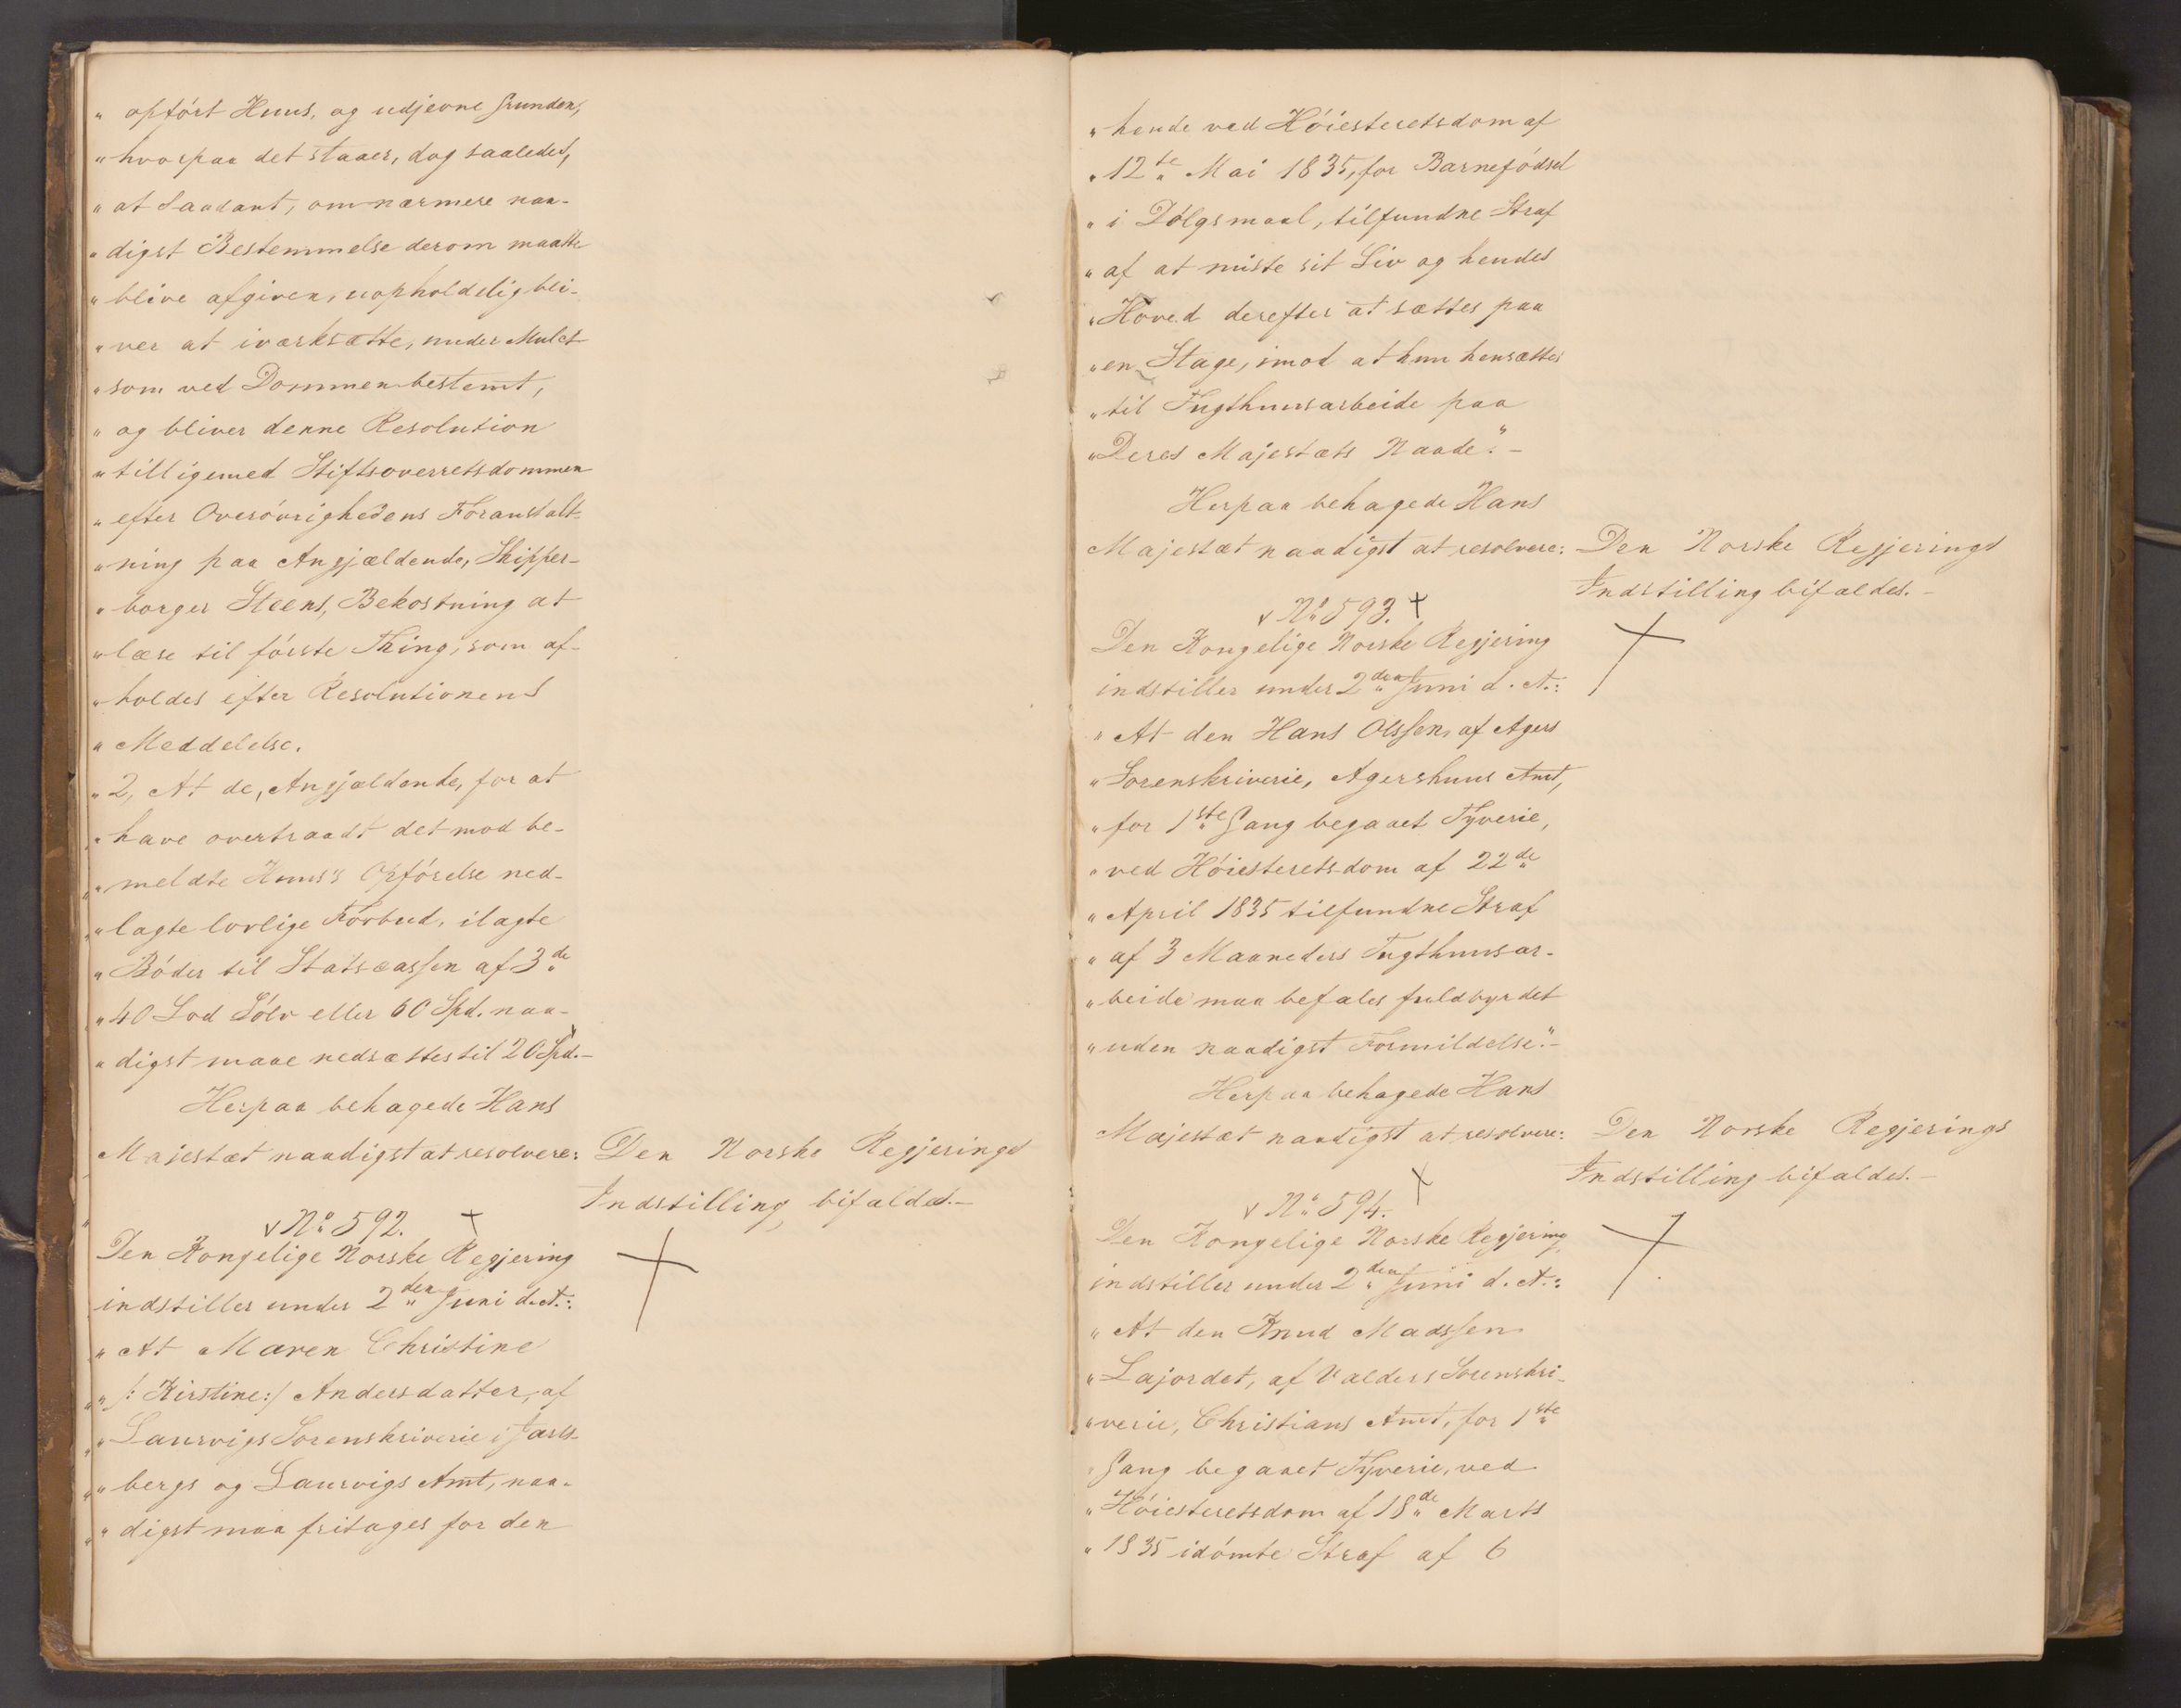 " opført Huus, og udjevne Grunden,
" hvorpaa det staaer, dog saaledes,
" at Saadant, om nærmere naa-
" digst Bestemmelse derom maatte
" blive afgiven, uopholdelig bli-
" ver at iværksætte, under Mulct
" som ved Dommen bestemt,
" og bliver denne Resolution
" tilligemed Stiftsoverretsdommen
" efter Overøvrighedens Foranstalt-
" ning paa Angjældende, Skipper-
" borger Steens, Bekostning at
" læse til første Thing, som af-
" holdes efter Resolutionens
" Meddelelse.
" 2, At de, Angjældende, for at
" have overtraadt det mod be-
" meldte Huus's Opførelse ned-
" lagte lovlige Forbud, ilagte
" Bøder til Statscassen af 3de
" 40 Lod Sølv eller 60 Spd. naa-
" digst maae nedsættes til 20 Spd." -
Herpaa behagede Hans
Majestæt naadigst at resolvere:
Den Norske Regjerings
Indstilling bifaldes. -
No 592.
Den Kongelige Norske Regjering
indstiller under 2den Juni d. A.:
" At Maren Christine
" /: Kirstine:/ Andersdatter, af
" Laurvigs Sorenskriverie i Jarls-
" bergs og Laurvigs Amt, naa-
" digst maa fritages for den
" hende ved Høiesteretsdom af
" 12te Mai 1835, for Barnefødsel
" i Dølgsmaal, tilfundne Straf
" af at miste sit Liv og hendes
" Hoved derefter at sættes paa
" en Stage, imod at hun hensættes
" til Tugthuusarbeide paa
" Deres Majestæts Naade." -
Herpaa behagede Hans
Majestæt naadigst at resolvere:
Den Norske Regjerings
Indstilling bifaldes. -
No 593.
Den Kongelige Norske Regjering
indstiller under 2den Juni d. A.:
" At den Hans Olssen, af Agers
" Sorenskriverie, Agershuus Amt,
" for 1ste Gang begaaet Tyverie,
" ved Høiesteretsdom af 22de
" April 1835 tilfundne Straf
" af 3 Maaneders Tugthuusar-
" beide maa befales fuldbyrdet
" uden naadigst Formildelse." -
Herpaa behagede Hans
Majestæt naadigst at resolvere:
Den Norske Regjerings
Indstilling bifaldes. -
No 594.
Den Kongelige Norske Regjering
indstiller under 2den Juni d. A.:
" At den Knud Madssen
" Lajordet, af Valders Sorenskri-
" verie, Christians Amt, for 1ste
" Gang begaaet Tyverie, ved
" Høiesteretsdom af 18de Marts
" 1835 idømte Straf af 6